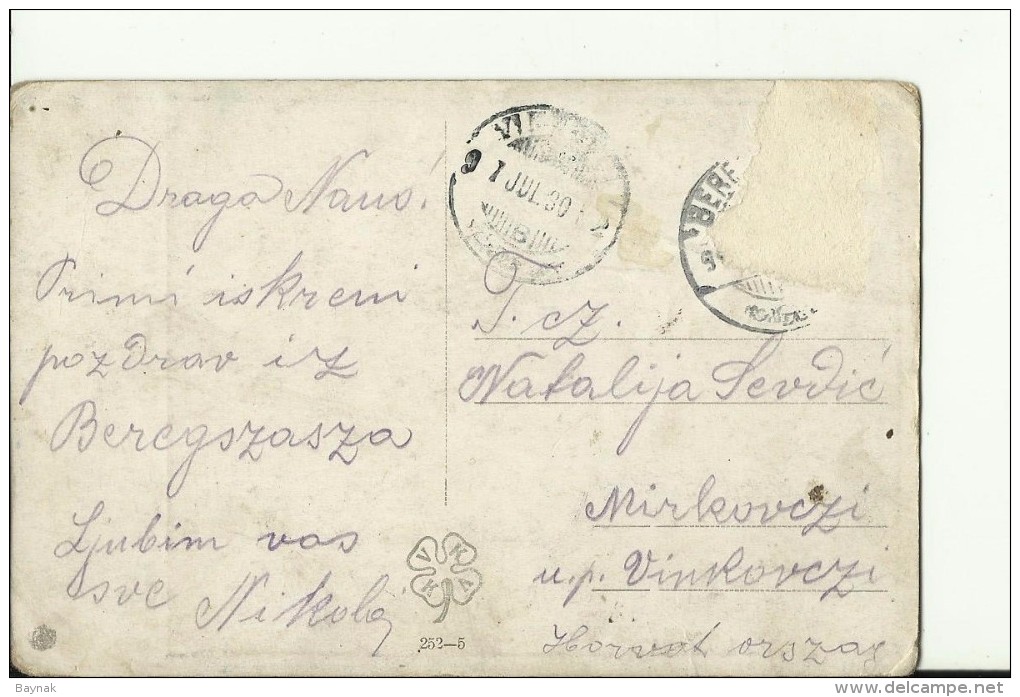 Draga Naus!
Primi iskreni
pozdrav iz
Beregszasza
Ljubim vas
sve
Nikola
91 JUL. 30
8
BERE
T. cz.
Natalija Sevdić
Mirkovczi
u.p. Vinkovczi
Horvat orszag
V K K V
252–5
Baynak
www.delcampe.net